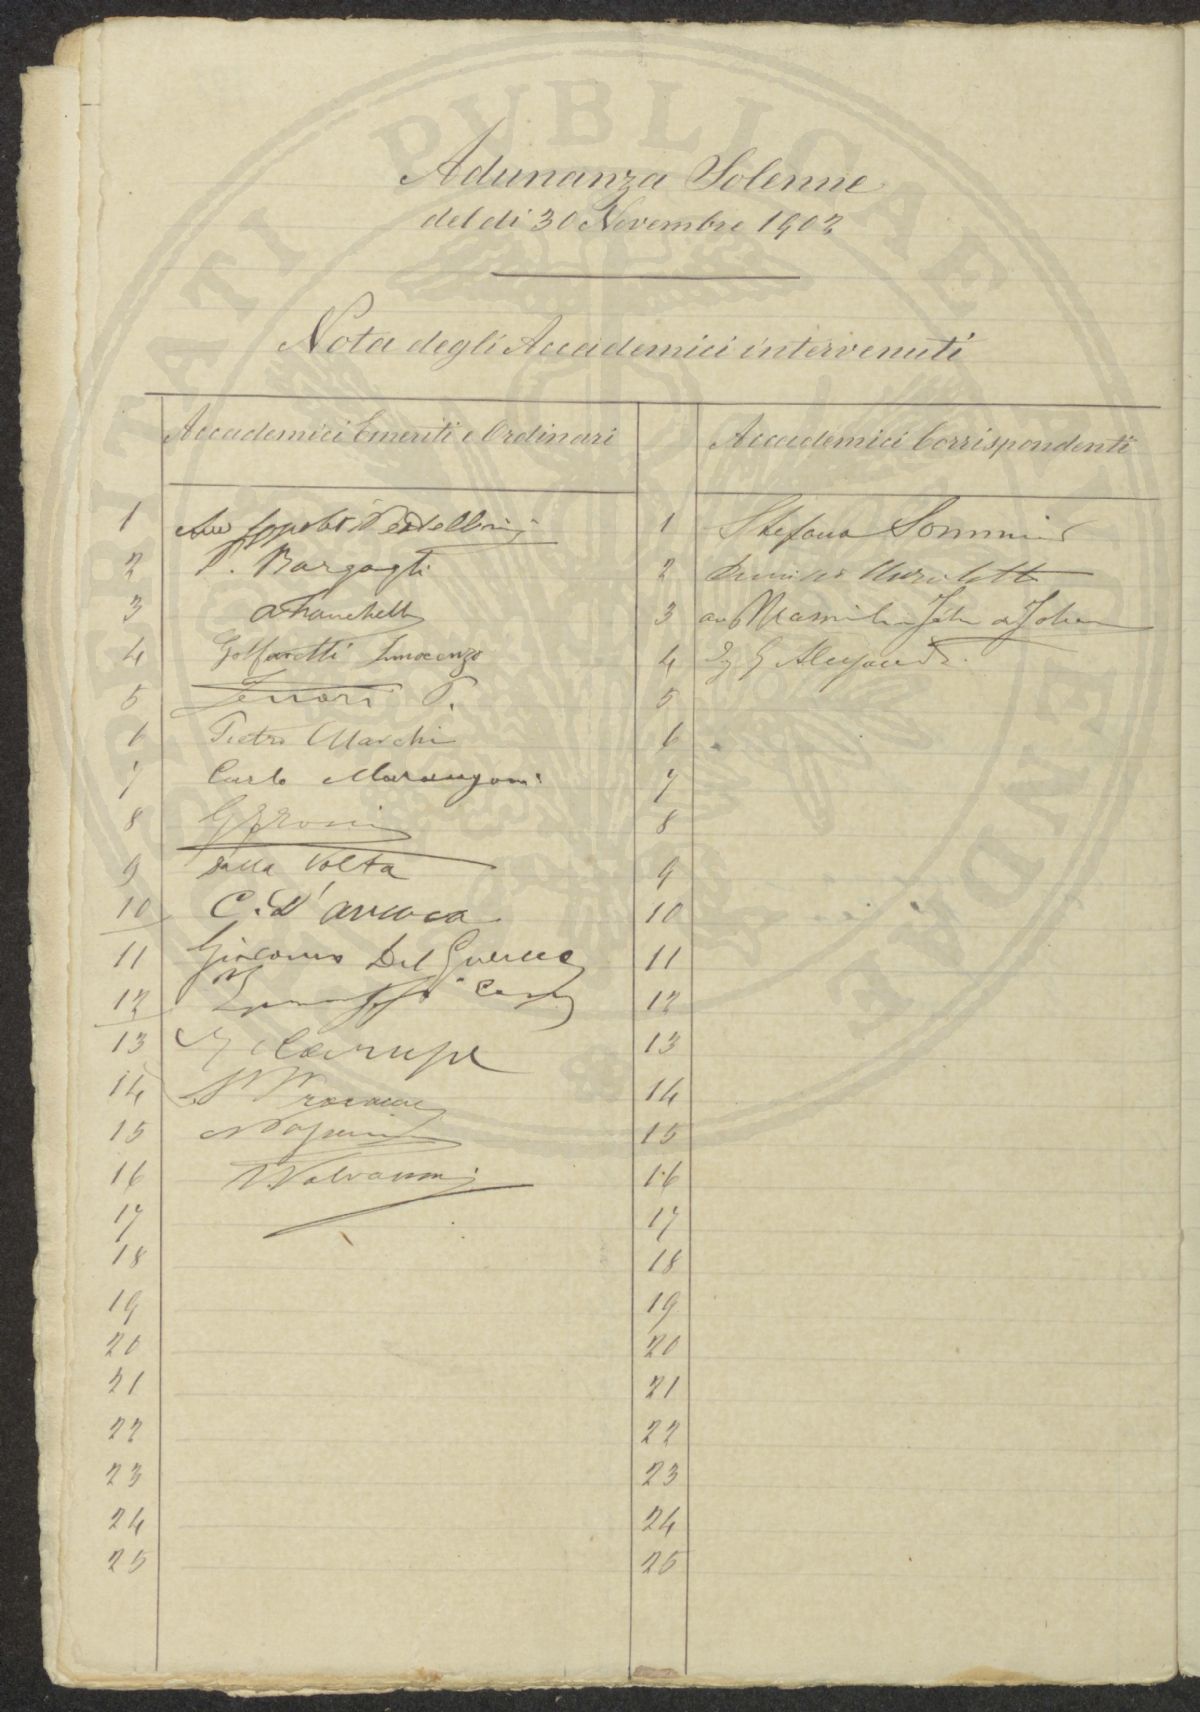 PROSPERITATI PUBLICAE AUGENDAE
Adunanza Solenne
del dì 30 Novembre 1902
Nota degli Accademici intervenuti
Accademici Emeriti e Ordinari
1 Avv Ippolito Pestellini
2 P. Bargagli
3
4 Golfarelli Innocenzo
5 P.
6 Pietro Marchi
7 Carlo Marangoni
8
9 dalla Volta
10 C. D'ancona
11 Giacomo Del Guercio
12
13
14
15
16 Valvassori
17
18
19
20
21
22
23
24
25
Accademici Corrispondenti
1 Stefano Sommier
2
3 avv
4
5
6
7
8
9
10
11
12
13
14
15
16
17
18
19
20
21
22
23
24
25